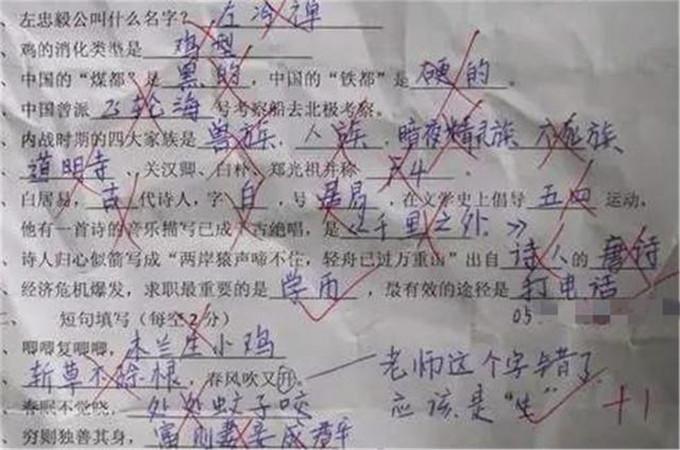 、左忠毅公叫什么名字？ 左冷禅
、鸡的消化类型是 鸡型
、中国的“煤都”是 黑的 ，中国的“铁都”是 硬的 。
、中国曾派 飞轮海 号考察船去北极考察。
、内战时期的四大家族是 兽族、人族、暗夜精灵族、不死族、
、道明寺、关汉卿、白朴、郑光祖并称 F4 。
、白居易， 古 代诗人，字 白 ，号 居易 ，在文学史上倡导 五四 运动，
他有一首诗的音乐描写已成千古绝唱，是《千里之外》
、诗人归心似箭写成“两岸猿声啼不住，轻舟已过万重山”出自 诗人 的 唐诗
、经济危机爆发，求职最重要的是 学历 ，最有效的途径是 打电话
05
二、 短句填写（每空2分）
、唧唧复唧唧，木兰生小鸡
、斩草不除根，春风吹又开。 老师这个字错了
应该是“生” +1
、春眠不觉晓，处处蚊子咬
、穷则独善其身，富则妻妾成群